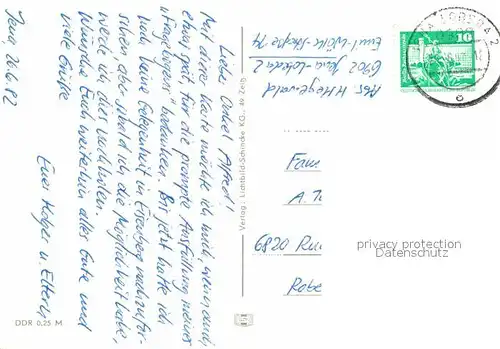 Jena, 20.6.82
Lieber Onkel Alfred!
Mit dieser Karte möchte ich mich, wenn auch
etwas spät für die prompte Ausfüllung meines
"Fragebogens" bedanken. Bis jetzt hatte ich
noch keine Gelegenheit in Eisenberg nachzufor-
schen aber sobald ich die Möglichkeit habe,
werde ich dies nachholen.
Wünsche Euch weiterhin alles Gute und
viele Grüße
Euer Holger u. Eltern
DDR 0,25 M
Verlag: Lichtbild-Schincke KG., 49 Zeitz
Abs. H. Hegewald
6902 Jena-Lobeda 2
Emil-Wölk-Straße 14
10
Fam
A. T
6820 Ru
privacy protection
Datenschutz